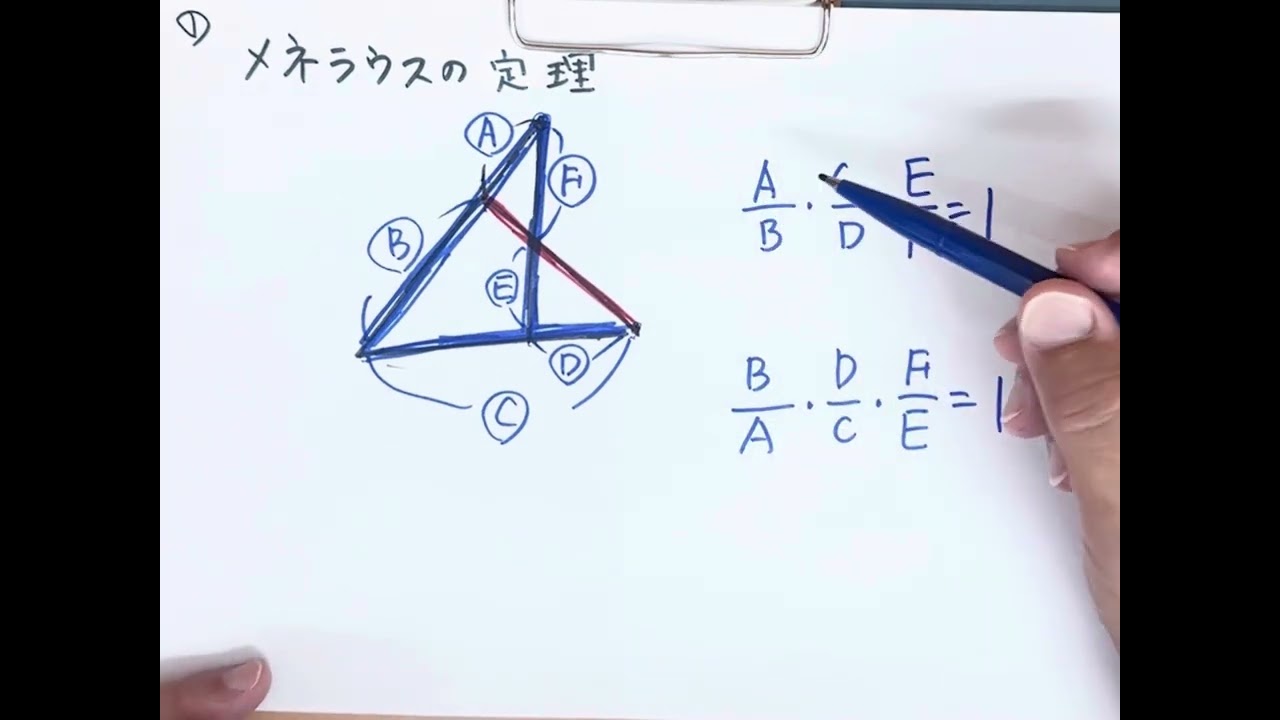 ①
メネラウスの定理
A
F
B
E
D
C
A/B · /D E = 1
B/A · D/C · F/E = 1